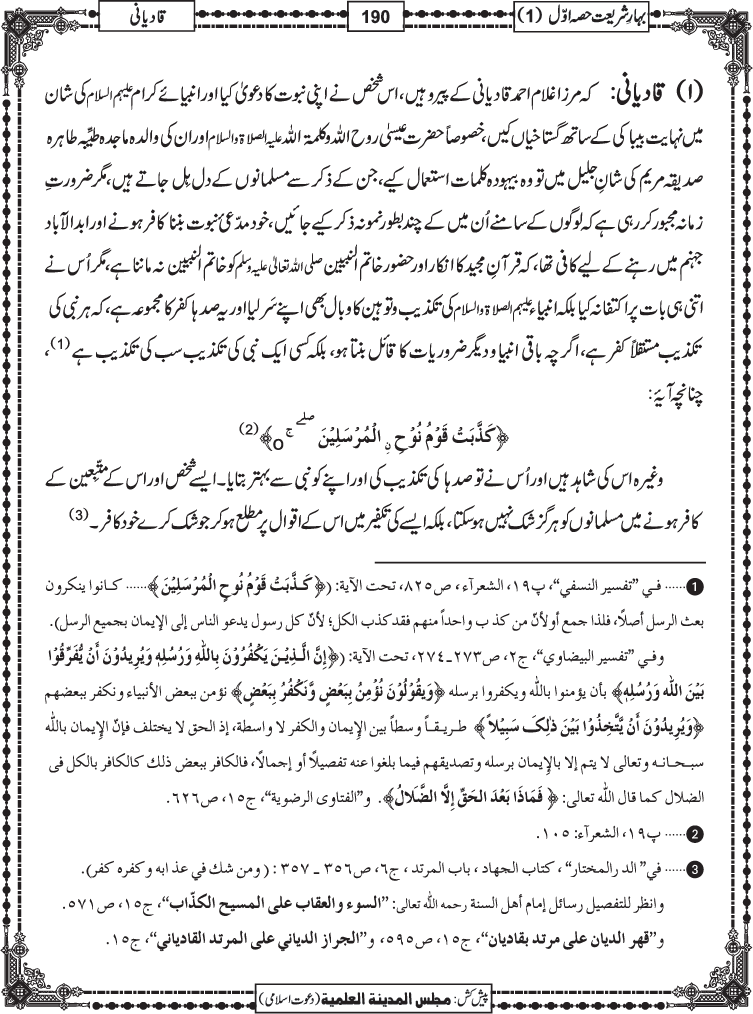 بہارِشریعت حصہ اوّل (1)
190
قادیانی
(۱) قادیانی: کہ مرزا غلام احمد قادیانی کے پیرو ہیں، اس شخص نے اپنی نبوت کا دعویٰ کیا اور انبیائے کرام علیہم السلام کی شان
میں نہایت بیباکی کے ساتھ گستاخیاں کیں، خصوصاً حضرت عیسیٰ روح اللہ وکلمۃ اللہ علیہ الصلاۃ والسلام اور ان کی والدہ ماجدہ طیِّبہ طاہرہ
صدیقہ مریم کی شانِ جلیل میں تو وہ بیہودہ کلمات استعمال کیے، جن کے ذکر سے مسلمانوں کے دل ہِل جاتے ہیں، مگر ضرورتِ
زمانہ مجبور کر رہی ہے کہ لوگوں کے سامنے اُن میں کے چند بطور نمونہ ذکر کیے جائیں، خود مدّعیٔ نبوت بننا کافر ہونے اور ابد الآباد
جہنم میں رہنے کے لیے کافی تھا، کہ قرآنِ مجید کا انکار اور حضور خاتم النبیین صلی اللہ تعالیٰ علیہ وسلم کو خاتم النبیین نہ ماننا ہے، مگر اُس نے
اتنی ہی بات پر اکتفا نہ کیا بلکہ انبیاء علیہم الصلاۃ والسلام کی تکذیب و توہین کا وبال بھی اپنے سَر لیا اور یہ صدہا کفر کا مجموعہ ہے، کہ ہر نبی کی
تکذیب مستقلاً کفر ہے، اگرچہ باقی انبیا و دیگر ضروریات کا قائل بنتا ہو، بلکہ کسی ایک نبی کی تکذیب سب کی تکذیب ہے (1)،
چنانچہ آیۂ:
﴿كَذَّبَتْ قَوْمُ نُوْحِ ِن الْمُرْسَلِيْنَ ۚۖ o﴾ (2)
وغیرہ اس کی شاہد ہیں اور اُس نے تو صدہا کی تکذیب کی اور اپنے کو نبی سے بہتر بتایا۔ ایسے شخص اور اس کے متّبِعین کے
کافر ہونے میں مسلمانوں کو ہرگز شک نہیں ہوسکتا، بلکہ ایسے کی تکفیر میں اس کے اقوال پر مطلع ہو کر جو شک کرے خود کافر۔ (3)
1 ...... في ”تفسير النسفي“، پ١٩، الشعرآء ، ص٨٢٥، تحت الآية: (﴿كَذَّبَتْ قَوْمُ نُوْحِ الْمُرْسَلِيْنَ﴾...... كانوا ينكرون
بعث الرسل أصلًا، فلذا جمع أو لأنّ من كذب واحداً منهم فقد كذب الكل؛ لأنّ كل رسول يدعو الناس إلى الإيمان بجميع الرسل).
وفي ”تفسير البيضاوي“، ج٢، ص٢٧٣ـ٢٧٤، تحت الآية: (﴿اِنَّ الَّـذِيْنَ يَكْفُرُوْنَ بِاللّٰهِ وَرُسُلِهٖ وَيُرِيْدُوْنَ اَنْ يُّفَرِّقُوْا
بَيْنَ اللّٰهِ وَرُسُلِهٖ﴾ بأن يؤمنوا بالله ويكفروا برسله ﴿وَيَقُوْلُوْنَ نُؤْمِنُ بِبَعْضٍ وَّنَكْفُرُ بِبَعْضٍ﴾ نؤمن ببعض الأنبياء ونكفر ببعضهم
﴿وَيُرِيْدُوْنَ اَنْ يَّتَّخِذُوْا بَيْنَ ذٰلِكَ سَبِيْلاً﴾ طريقاً وسطاً بين الإيمان والكفر لا واسطة، إذ الحق لا يختلف فإنّ الإيمان بالله
سبحانه وتعالى لا يتم إلا بالإيمان برسله وتصديقهم فيما بلغوا عنه تفصيلًا أو إجمالًا، فالكافر ببعض ذلك كالكافر بالكل فى
الضلال كما قال الله تعالى: ﴿ فَمَاذَا بَعْدَ الحَقِّ اِلَّا الضَّلَالُ﴾. و”الفتاوى الرضوية“، ج١٥، ص٦٢٦.
2 ...... پ١٩، الشعرآء: ١٠٥ .
3 ...... في” الدر المختار“ ، كتاب الجهاد ، باب المرتد ، ج٦، ص ٣٥٦ ـ ٣٥٧ : ( ومن شك في عذابه وكفره كفر).
وانظر للتفصيل رسائل إمام أهل السنة رحمه الله تعالى: ”السوء والعقاب على المسيح الكذّاب“، ج١٥، ص٥٧١.
و”قهر الديان على مرتد بقاديان“، ج١٥، ص٥٩٥، و”الجراز الدياني على المرتد القادياني“، ج١٥.
پیش کش: مجلس المدینۃ العلمیۃ (دعوت اسلامی)